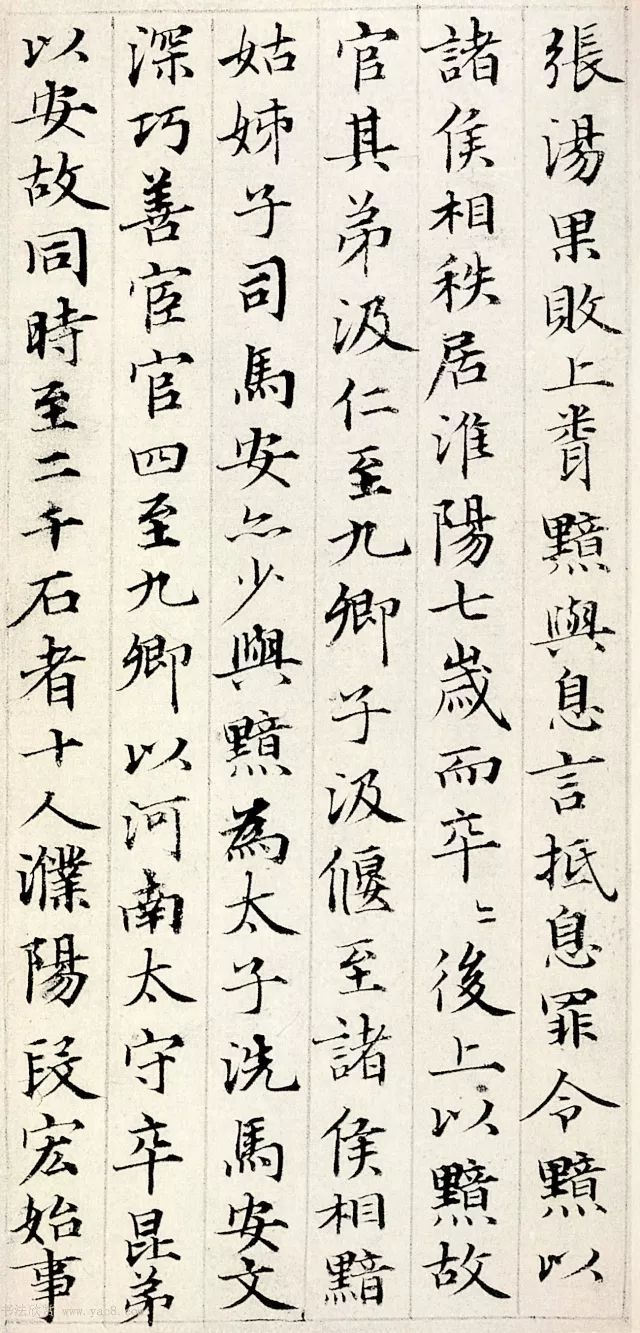 張湯果敗上聞黯與息言抵息罪令黯以
諸侯相秩居淮陽七歲而卒〻後上以黯故
官其弟汲仁至九卿子汲偃至諸侯相黯
姑姊子司馬安亦少與黯為太子洗馬安文
深巧善宦官四至九卿以河南太守卒昆弟
以安故同時至二千石者十人濮陽段宏始事
书法欣赏 www.yac8.com